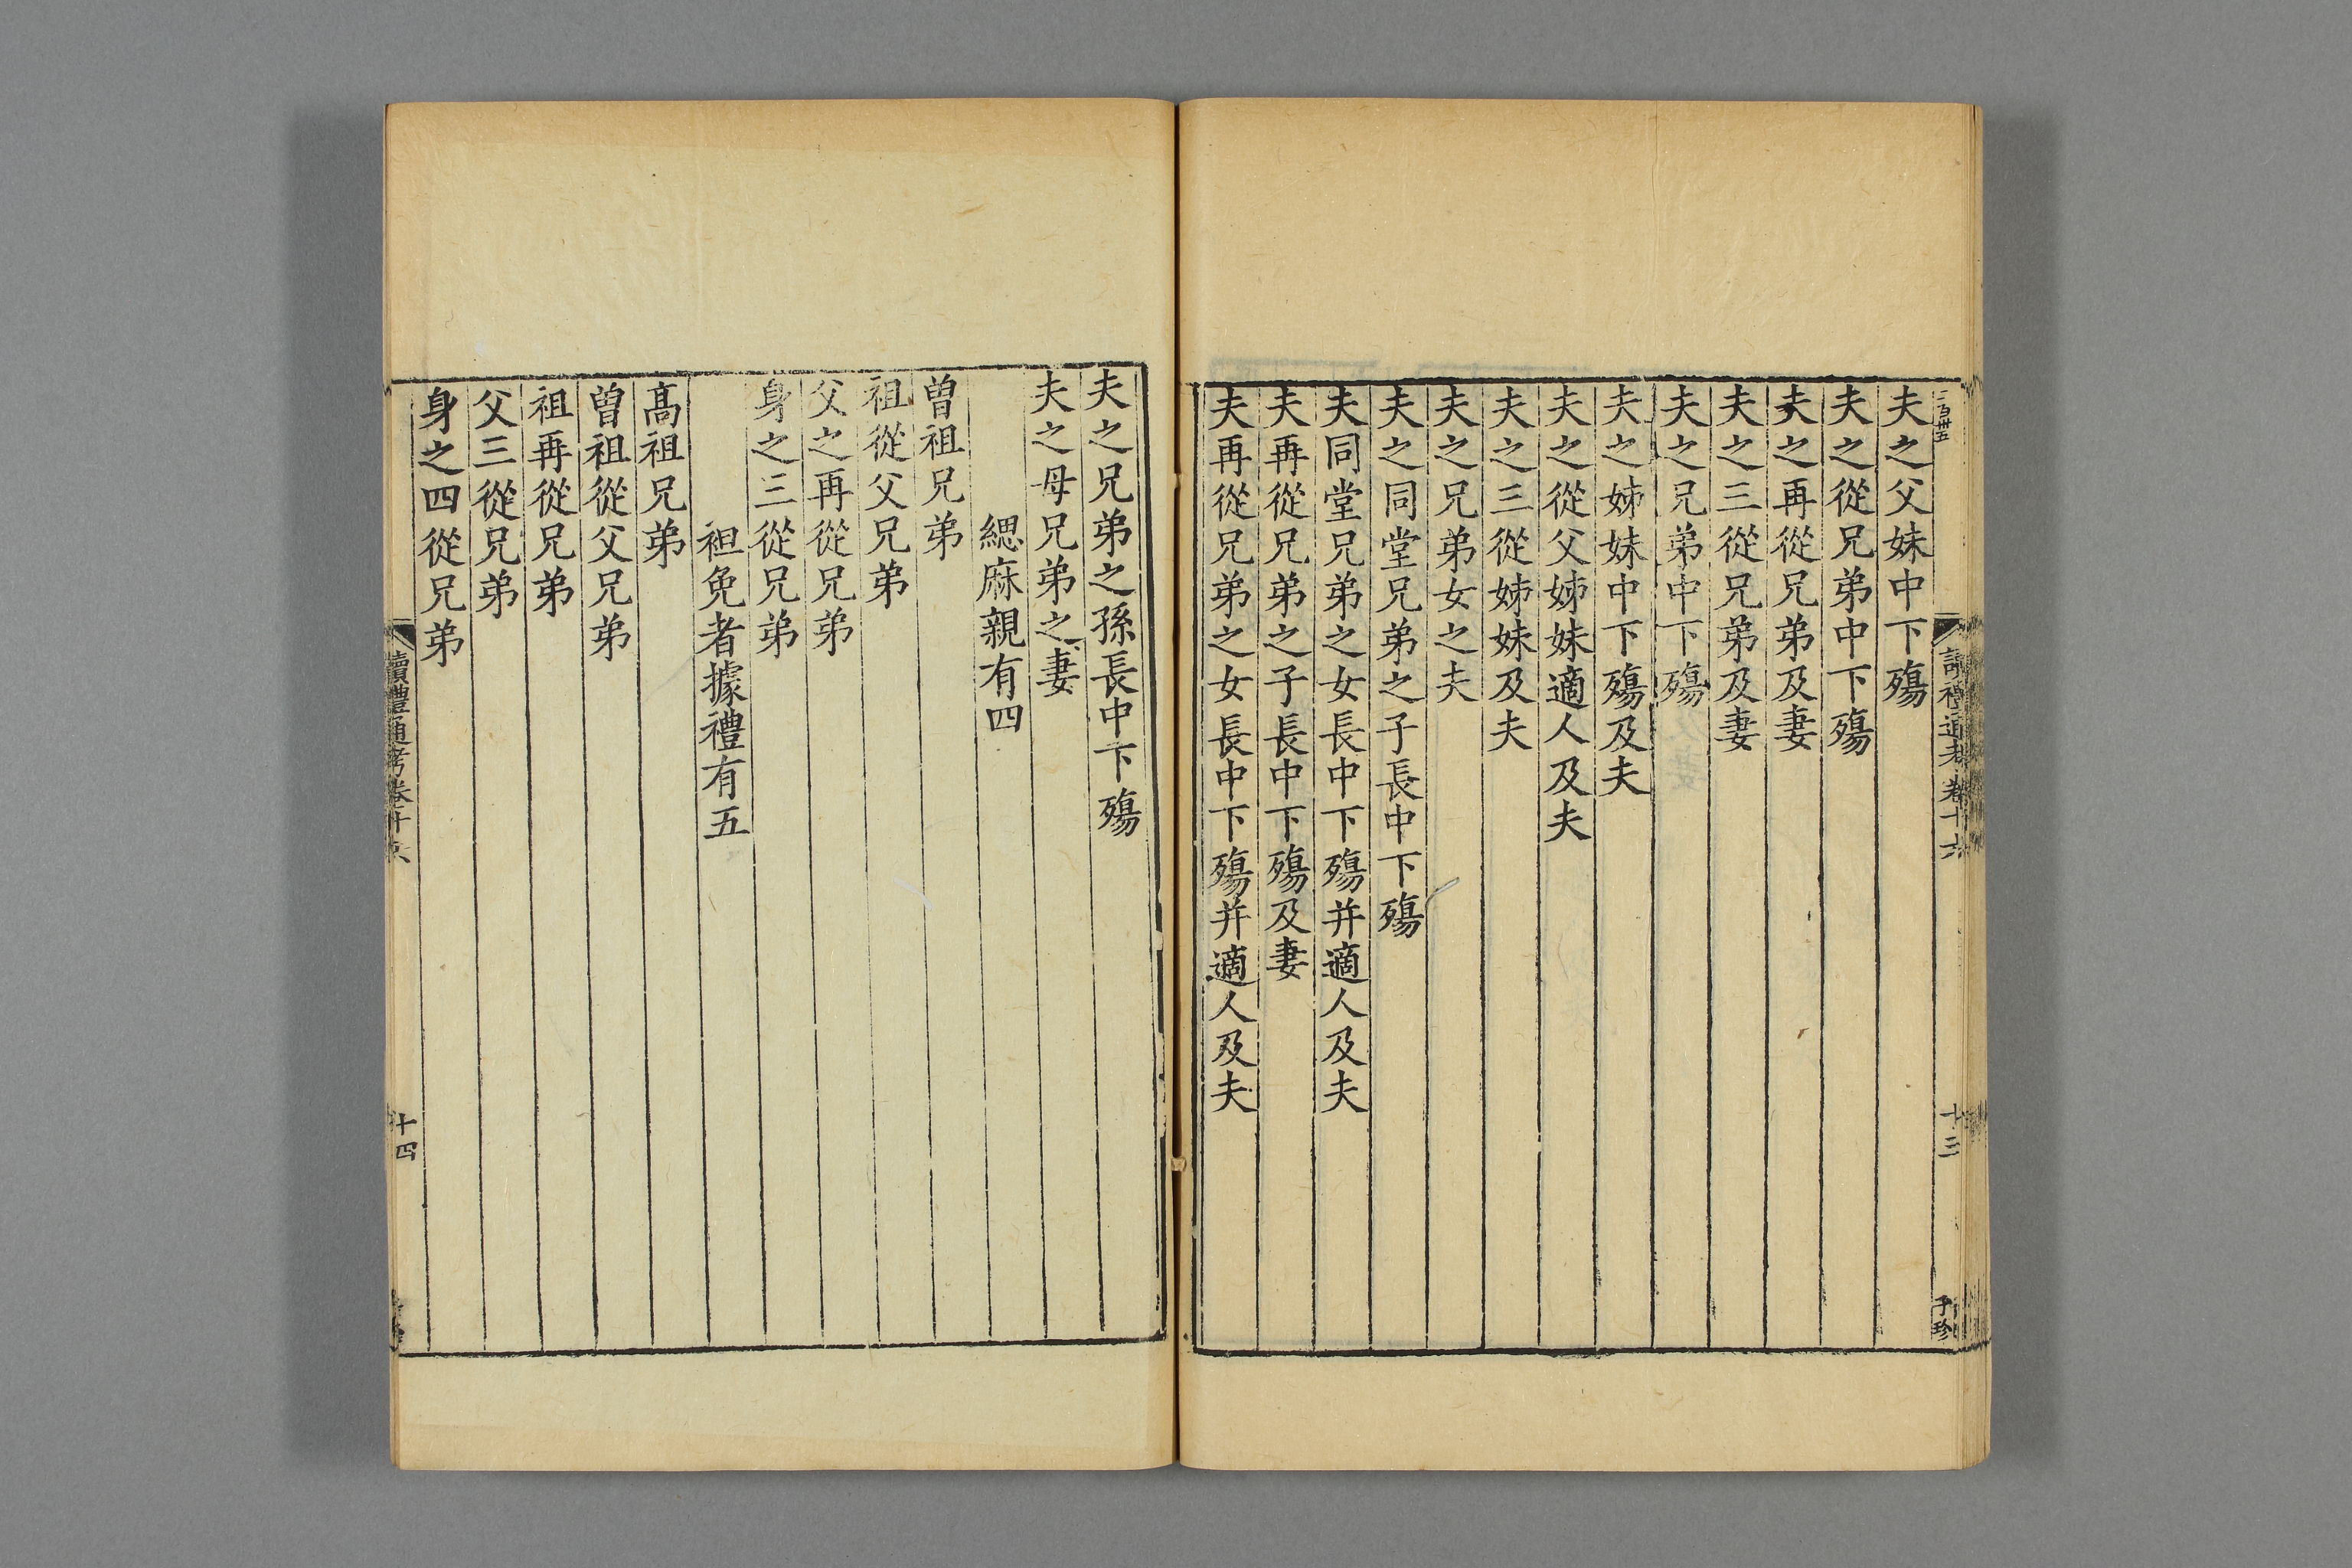 二百卅五
讀禮通考卷十六
十三
子珍
夫之父妹中下殤
夫之從兄弟中下殤
夫之再從兄弟及妻
夫之三從兄弟及妻
夫之兄弟中下殤
夫之姊妹中下殤及夫
夫之從父姊妹適人及夫
夫之三從姊妹及夫
夫之兄弟女之夫
夫之同堂兄弟之子長中下殤
夫同堂兄弟之女長中下殤并適人及夫
夫再從兄弟之子長中下殤及妻
夫再從兄弟之女長中下殤并適人及夫
夫之兄弟之孫長中下殤
夫之母兄弟之妻
緦麻親有四
曾祖兄弟
祖從父兄弟
父之再從兄弟
身之三從兄弟
袒免者據禮有五
高祖兄弟
曾祖從父兄弟
祖再從兄弟
父三從兄弟
身之四從兄弟
讀禮通考卷十六
十四